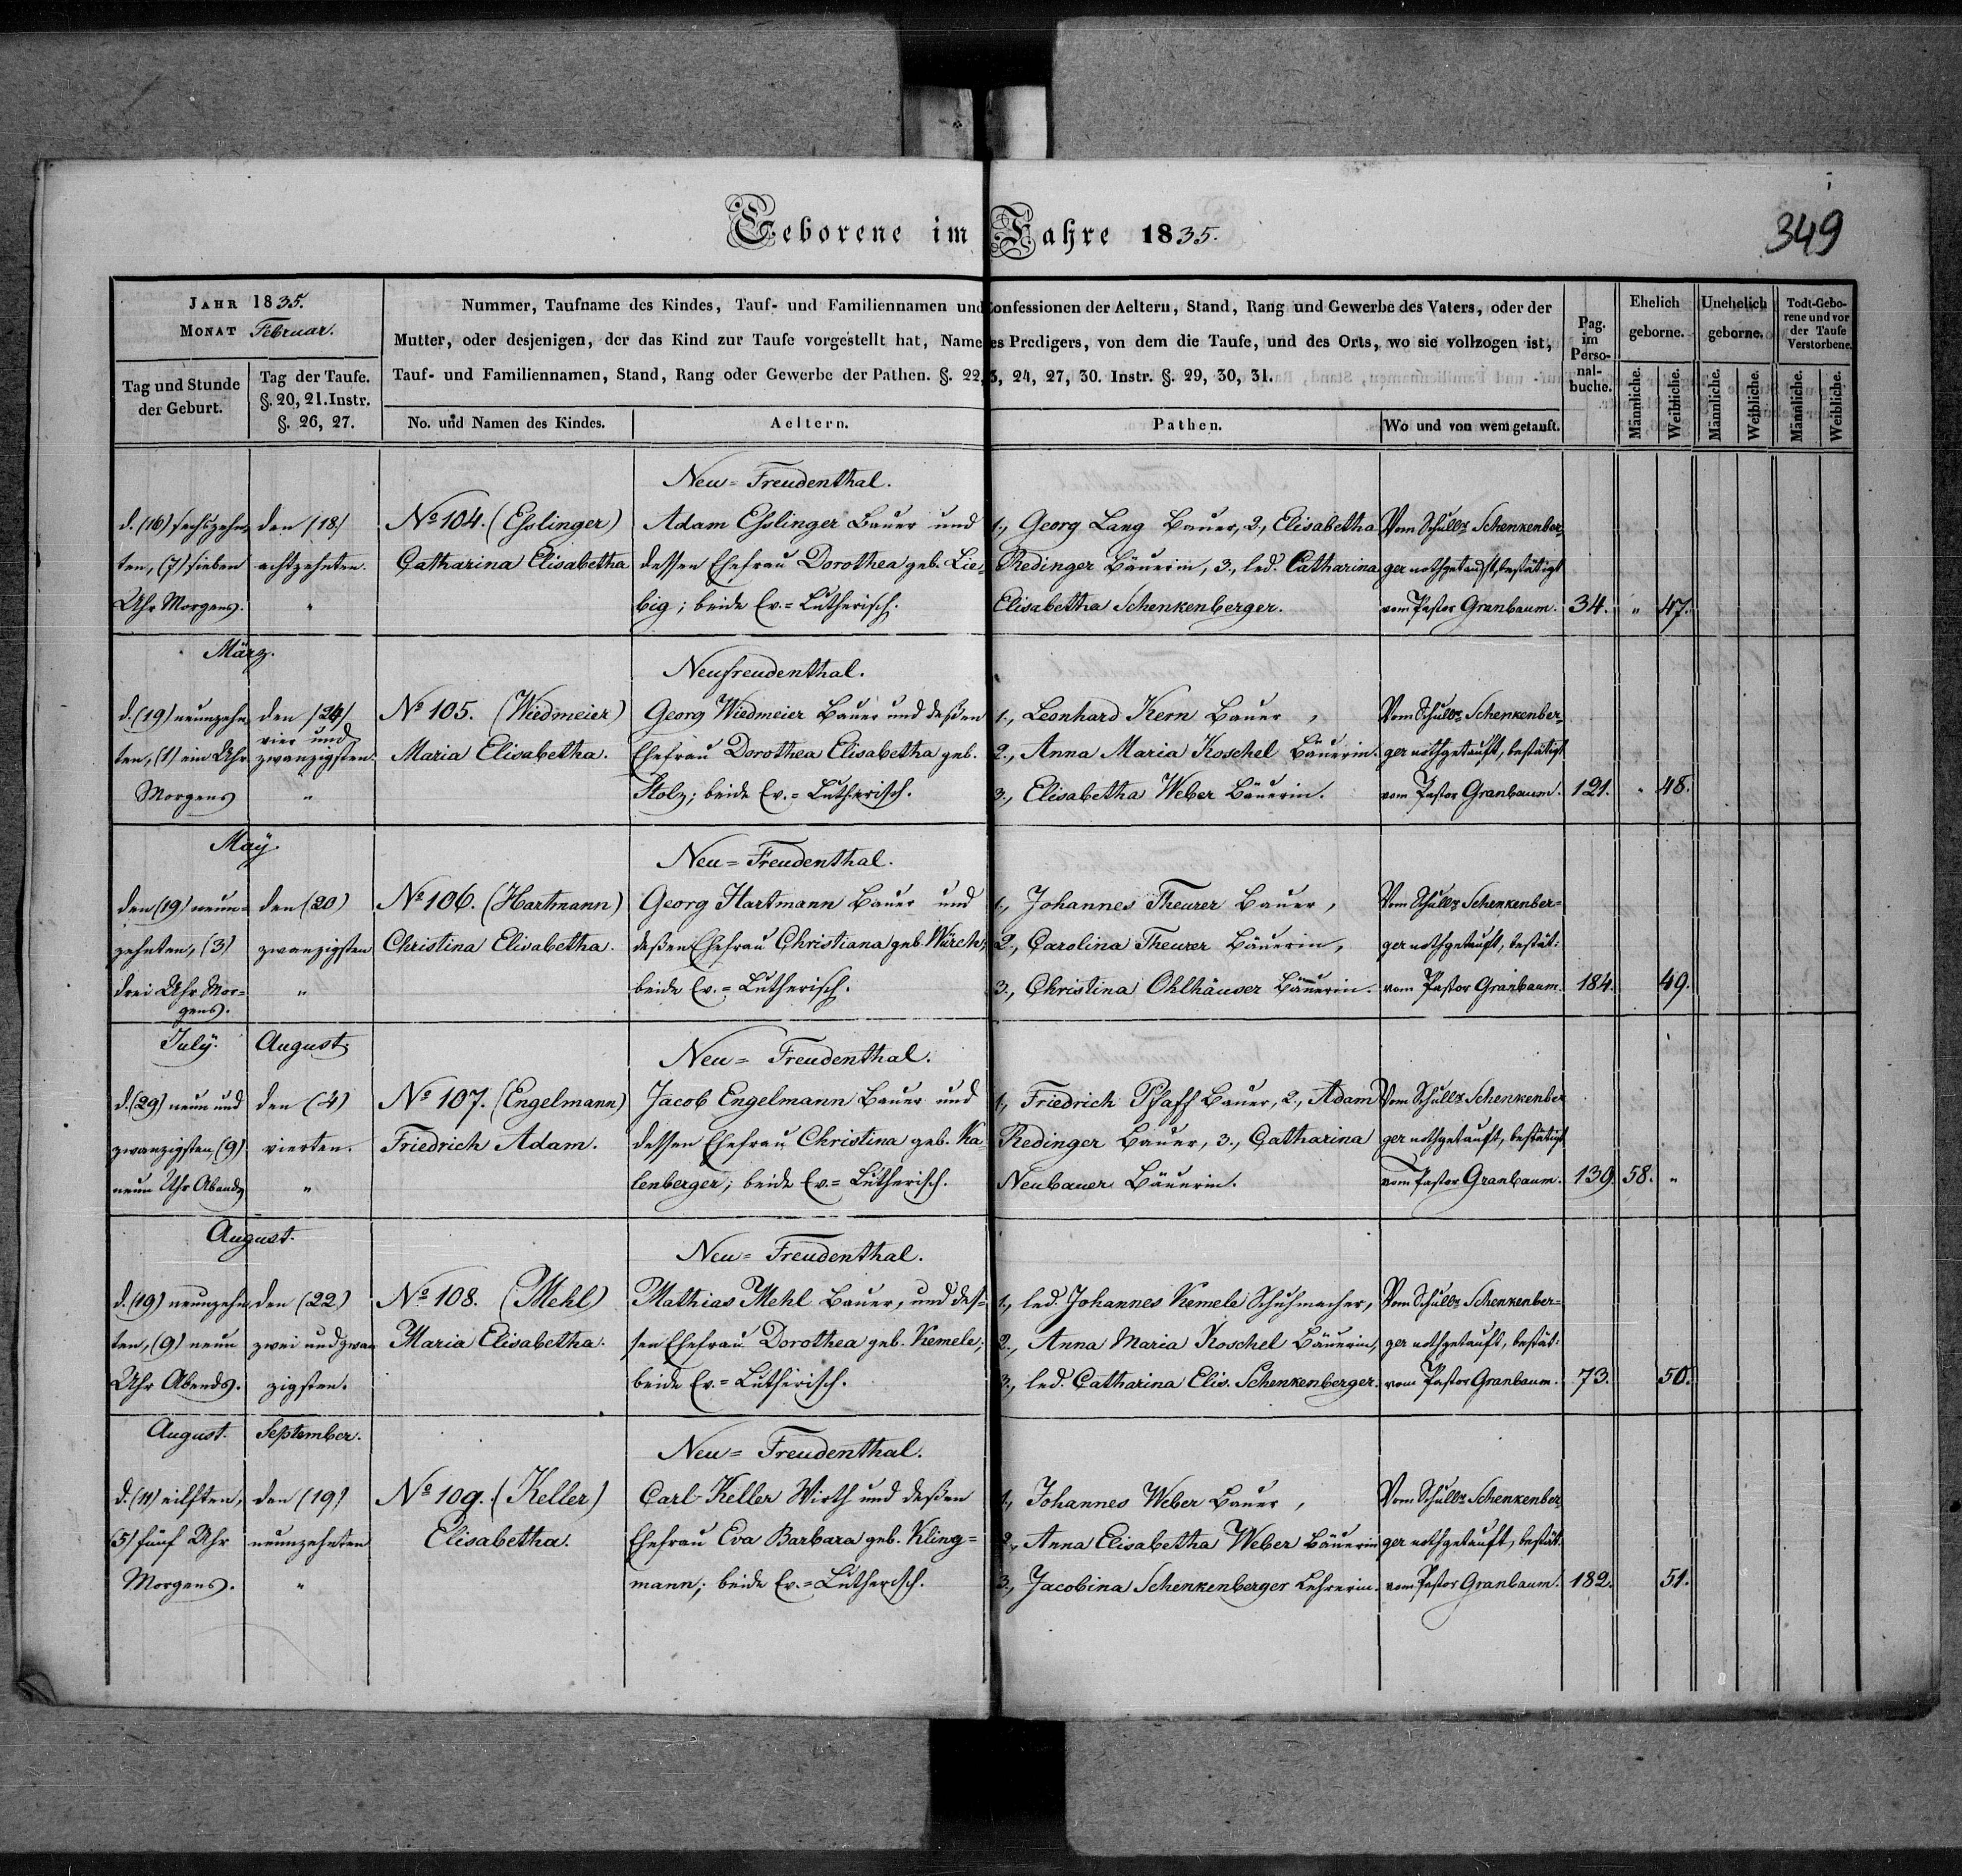 Geborene im Jahre 1835.
349
JAHR 1835.
MONAT Februar.
Nummer, Taufname des Kindes, Tauf- und Familiennamen und Confessionen der Aeltern, Stand, Rang und Gewerbe des Vaters, oder der
Mutter, oder desjenigen, der das Kind zur Taufe vorgestellt hat, Name es Predigers, von dem die Taufe, und des Orts, wo sie vollzogen ist,
Tauf- und Familiennamen, Stand, Rang oder Gewerbe der Pathen. §. 22, 23, 24, 27, 30. Instr. §. 29, 30, 31.
Tag und Stunde
der Geburt.
Tag der Taufe.
§. 20, 21. Instr.
§. 26, 27.
No. und Namen des Kindes.
Aeltern.
Pathen.
Wo und von wem getauft.
Pag.
im
Perso-
nal-
buche.
Ehelich
geborne.
Unehelich
geborne.
Todt-Gebo-
rene und vor
der Taufe
Verstorbene.
Männliche.
Weibliche.
Männliche.
Weibliche.
Männliche.
Weibliche.
Neu=Freudenthal.
d. (16) sechszehn=
ten, (7) sieben
Uhr Morgens.
den (18)
achtzehnten.
"
No 104. (Eßlinger)
Catharina Elisabetha
Adam Eßlinger Bauer und
dessen Ehefrau Dorothea geb. Lie=
big; beide Ev.=Lutherisch.
1., Georg Lang Bauer, 2., Elisabetha
Redinger Bäuerin, 3., led. Catharina
Elisabetha Schenkenberger.
Vom Schullr Schenkenber=
ger nothgetauft, bestätigt
vom Pastor Granbaum.
34. " 47.
März.
Neufreudenthal.
d. (19) neunzehn
ten, (1) ein Uhr
Morgens
den (24)
vier und
zwanzigsten.
"
No 105. (Wiedmeier)
Maria Elisabetha.
Georg Wiedmeier Bauer und deßen
Ehefrau Dorothea Elisabetha geb.
Stolz; beide Ev.=Lutherisch.
1., Leonhard Kern Bauer,
2., Anna Maria Koschel Bäuerin.
3., Elisabetha Weber Bäuerin.
Vom Schullr Schenkenber=
ger nothgetauft, bestätigt
vom Pastor Granbaum.
121. " 48.
May.
Neu=Freudenthal.
den (19) neun=
zehnten, (3)
drei Uhr Mor=
gens.
den (20)
zwanzigsten
"
No 106. (Hartmann)
Christina Elisabetha.
Georg Hartmann Bauer und
deßen Ehefrau Christiana geb. Würch;
beide Ev.=Lutherisch.
1., Johannes Theurer Bauer,
2., Carolina Theurer Bäuerin,
3., Christina Ohlhäuser Bäuerin.
Vom Schullr Schenkenber=
ger nothgetauft, bestät:
vom Pastor Granbaum.
184. 49.
July. August.
Neu=Freudenthal.
d. (29) neun und
zwanzigsten (9)
neun Uhr Abends
den (4)
vierten.
"
No 107. (Engelmann)
Friedrich Adam.
Jacob Engelmann Bauer und
dessen Ehefrau Christina geb. Ka
lenberger; beide Ev.=Lutherisch.
1., Friedrich Pfaff Bauer, 2., Adam
Redinger Bauer, 3., Catharina
Neubauer Bäuerin.
Vom Schullr Schenkenber
ger nothgetauft, bestätigt
vom Pastor Granbaum.
139. 58. "
August.
Neu=Freudenthal.
d. (19) neunzehn
ten, (9) neun
Uhr Abends.
den (22)
zwei und zwan
zigsten.
No 108. (Mehl)
Maria Elisabetha.
Mathias Mehl Bauer, und des=
sen Ehefrau Dorothea geb. Kemele;
beide Ev.=Lutherisch.
1., led. Johannes Kemele Schuhmacher,
2., Anna Maria Koschel Bäuerin,
3., led. Catharina Elis. Schenkenberger.
Vom Schullr Schenkenber=
ger nothgetauft, bestät:
vom Pastor Granbaum.
73. 50.
August. September.
Neu=Freudenthal.
d. (11) eilften,
(5) fünf Uhr
Morgens.
den (19)
neunzehnten
"
No 109. (Keller)
Elisabetha.
Carl Keller Wirth und deßen
Ehefrau Eva Barbara geb. Kling=
mann; beide Ev.=Lutherisch.
1., Johannes Weber Bauer,
2., Anna Elisabetha Weber Bäuerin
3., Jacobina Schenkenberger Lehrerin.
Vom Schullr Schenkenber
ger nothgetauft, bestät.
vom Pastor Granbaum.
182. 51.